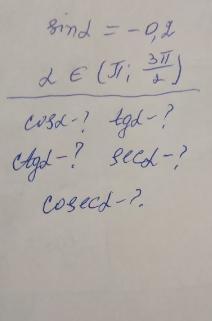 sinα = -0,2
α ∈ (π; 3π/2)
cosα-? tgα-?
ctgα-? secα-?
cosecα-?